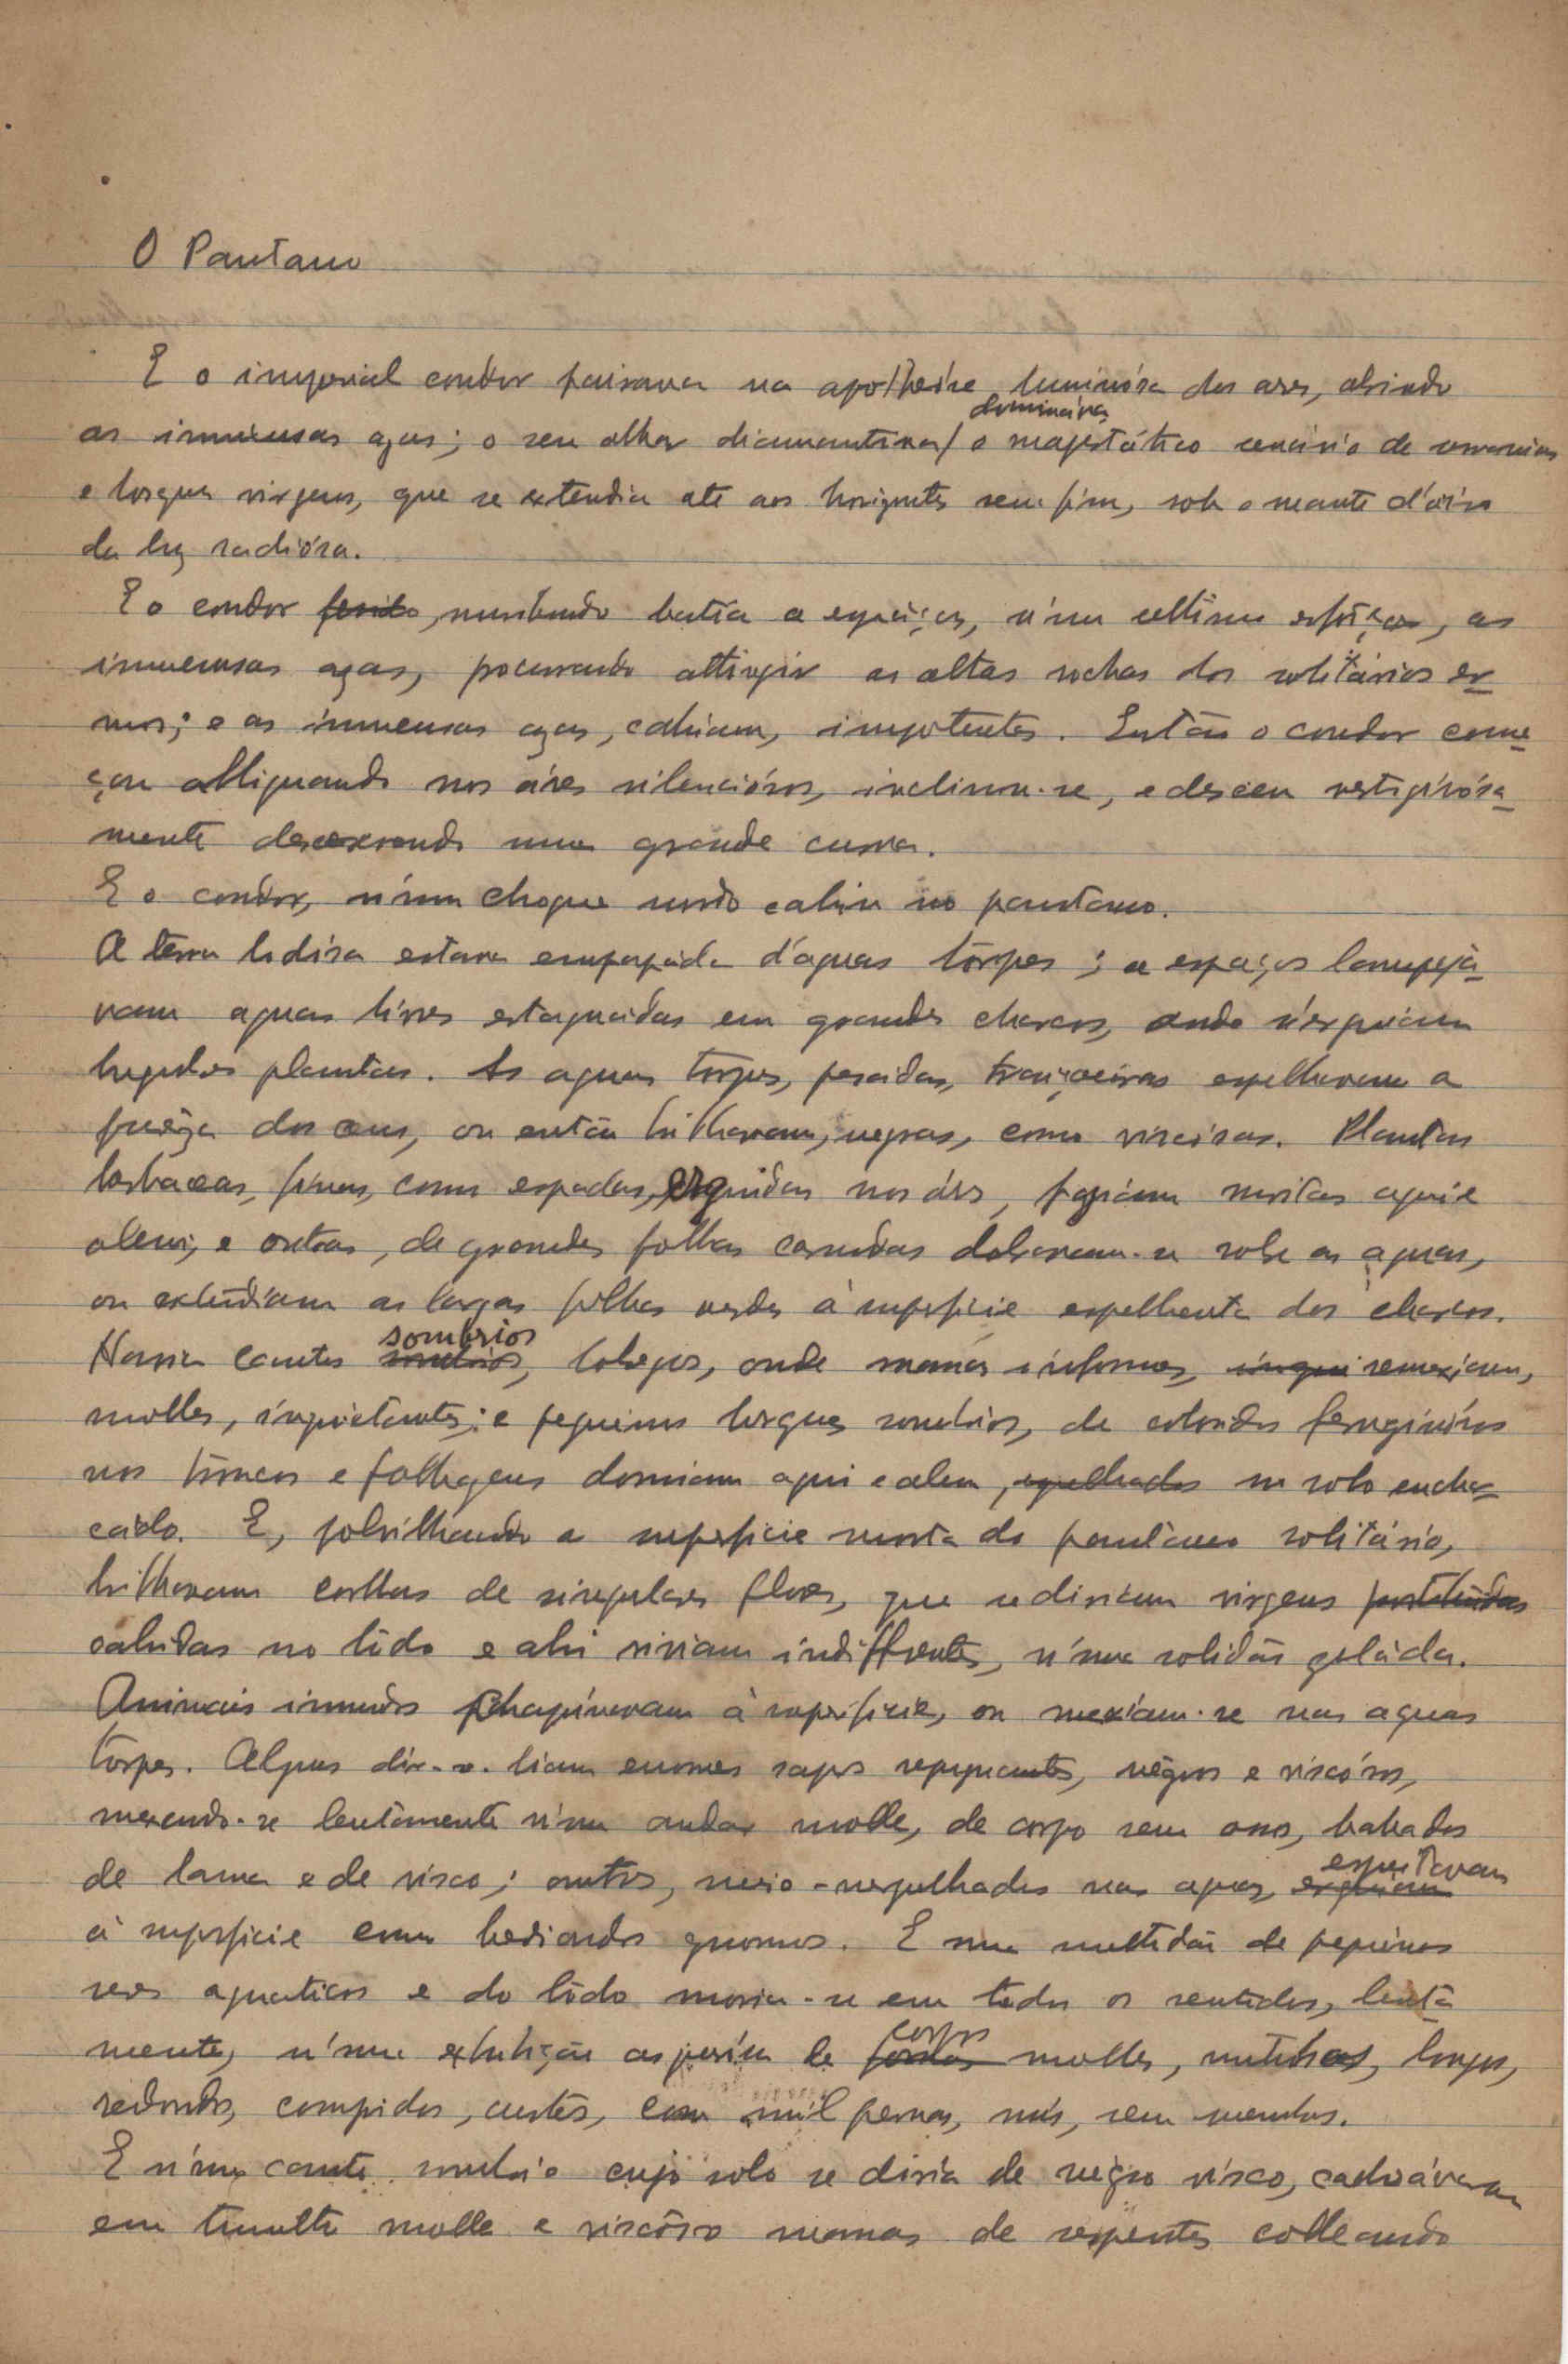 O Pantano
E o imperial condor pairava na apotheóse luminósa dos ares, abrindo
dominava
as immensas azas; o seu olhar diamantino o majestático cenário de serranias
e bosques virgens, que se extendia até aos horizontes sem fim, sob o manto d'oiro
da luz radiósa.
E o condor ferido, moribundo batia a espáços, n'um ultimo esfôrço, as
immensas azas, procurando attingir as altas rochas dos solitários er-
mos; e as immensas azas, cahiam, impotentes. Então o condor come-
çou obliquando nos áres silenciósos, inclinou-se, e desceu vertiginósa-
mente descrevendo uma grande curva.
E o condor, n'um choque surdo cahiu no pantano.
A terra lodósa estava empapada d'aguas tôrpes; a espaços lampejá-
vam aguas livres estagnadas em grandes charcos, onde s'erguiam
lugubres plantas. As aguas torpes, pesadas, traiçoeiras espelhavam a
puréza dos ceus, ou então brilhavam, negras, como viscósas. Plantas
herbaceas, finas, como espadas, erguidas nos áres, faziam moitas aqui e
alem; e outras, de grandes folhas carnudas dobravam-se sobre as aguas,
ou extendiam as largas folhas verdes á superficie espelhenta dos charcos.
sombrios
Havia cantos sombrios, lobregos, onde massas informes, inqui remexiam,
molles, inquietantes; e pequenos bosques sombrios, de coloridos ferruginósos
nos troncos e folhagens dormiam aqui e alem, espelhados no solo enchar-
cado. E, polvilhando a superficie morta do pantano solitário,
brilhavam corollas de singulares flores, que se diriam virgens prostituidas
cahidas no lôdo e ahi viviam indifferentes, n'uma solidão geláda.
Animais immundos chapinavam á superficie, ou mexiam-se nas aguas
torpes. Alguns dir-se-hiam enormes sapos repugnantes, négros e viscósos,
mexendo-se lentamente n'um andar molle, de corpo sem ossos, babados
espreitavam
de lama e de visco; outros, meio-mergulhados nas aguas, erguiam
á superficie como hediondos gnomos. E uma multidão de pequenos
seres aquaticos e do lôdo movia-se em todos os sentidos, lenta-
corpos
mente, n'uma exhibição asquerósa de formas molles, longos,
redondos, compridos, curtos, com mil pernas, nús, sem membros.
E n'um canto sombrio cujo solo se diria de négro visco,
em tumulto molle e viscôso massas de serpentes colleando